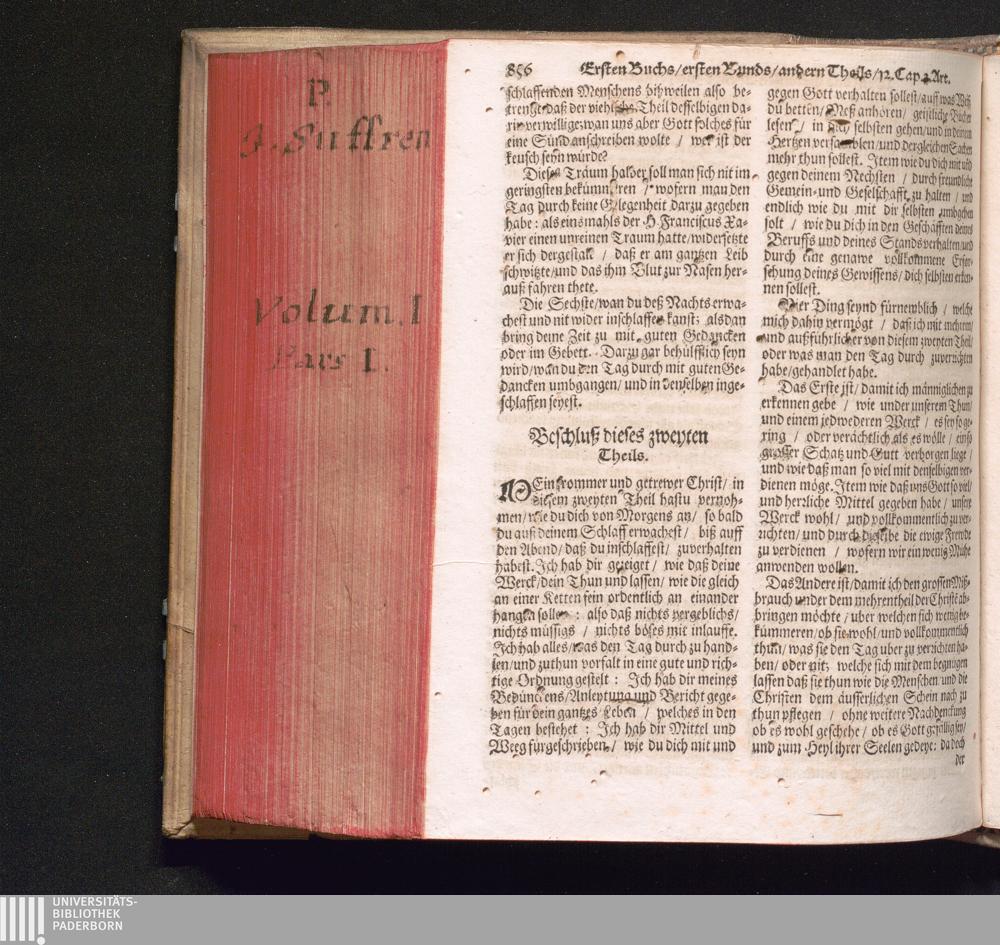 P.
J. Suffren
Volum. I
Pars I.
856 Ersten Buchs/ersten Bunds/andern Theils/12. Cap. Art.
schlaffenden Menschens bißweilen also be-
daß der viehische Theil desselbigen da-
verwillige: wan uns aber Gott solches für
eine Sünd anschreiben wolte / wer ist der
keusch seyn würde?
Dieses Traum halber soll man sich nit im
geringsten bekümmeren / wofern man den
Tag durch keine Gelegenheit darzu gegeben
habe: als einsmahls der H. Franciscus Xa-
vier einen unreinen Traum hatte/widersetzte
er sich dergestalt / daß er am gantzen Leib
schwitzte/und das ihm Blut zur Nasen her-
auß fahren thete.
Die Sechste/wan du deß Nachts erwa-
chest und nit wider inschlaffen kanst; alsdan
bring deine Zeit zu mit guten Gedancken
oder im Gebett. Darzu gar behülfflich seyn
wird/wan du den Tag durch mit guten Ge-
dancken umbgangen/und in denselben inge-
schlaffen seyest.
Beschluß dieses zweyten
Theils.
Ein frommer und getrewer Christ/ in
diesem zweyten Theil hastu vernoh-
men/wie du dich von Morgens an/ so bald
du auß deinem Schlaff erwachest/ biß auff
den Abend/daß du inschlaffest/ zuverhalten
habest. Ich hab dir gezeiget / wie daß deine
Werck/dein Thun und lassen/ wie die gleich
an einer Ketten fein ordentlich an einander
hangen sollen : also daß nichts vergeblichs/
nichts müssigs / nichts böses mit inlauffe.
Ich hab alles/was den Tag durch zu hand-
len/und zuthun vorfalt in eine gute und rich-
tige Ordnung gestelt : Ich hab dir meines
Bedünckens/Anleytung und Bericht gege-
ben für dein gantzes Leben / welches in den
Tagen bestehet : Ich hab dir Mittel und
Weeg fürgeschrieben / wie du dich mit und
gegen Gott verhalten sollest/auff was Weiß
du betten/ Meß anhören/ geistliche Bücher
lesen / in dich selbsten gehen/und in deinem
Hertzen versamblen/und dergleichen Sachen
mehr thun sollest. Item wie du dich mit und
gegen deinem Nechsten / durch freundliche
Gemein- und Gesellschafft zu halten / und
endlich wie du mit dir selbsten umbgehen
solt / wie du dich in den Geschäfften deines
Beruffs und deines Stands verhalten/und
durch eine genawe vollkommene Erfor-
schung deines Gewissens/dich selbsten erken-
nen sollest.
Vier Ding seynd fürnemblich / welche
mich dahin vermögt / daß ich mit mehrem/
und außführlicher von diesem zweyten Theil/
oder was man den Tag durch zuverrichten
habe/gehandlet habe.
Das Erste ist/damit ich männiglichen zu
erkennen gebe / wie under unserem Thun/
und einem jedwederen Werck / es sey so ge-
ring / oder verächtlich als es wölle / ein so
grosser Schatz und Gutt verborgen liege /
und wie daß man so viel mit denselbigen ver-
dienen möge. Item wie daß uns Gott so viel/
und herzliche Mittel gegeben habe / unsere
Werck wohl / und vollkommentlich zu ver-
richten/und durch dieselbe die ewige Frewde
zu verdienen / wofern wir ein wenig Mühe
anwenden wollen.
Das Andere ist/damit ich den grossen Miß-
brauch under dem mehrentheil der Christē ab-
bringen möchte / uber welchen sich wenig be-
kümmeren/ob sie wohl/und vollkommentlich
thun/was sie den Tag uber zu verzichten ha-
ben/ oder nit; welche sich mit dem begnügen
lassen daß sie thun wie die Menschen und die
Christen dem äusserlichen Schein nach zu
thun pflegen / ohne weitere Nachdenckung
ob es wohl geschehe/ ob es Gott gefällig sey/
und zum Heyl ihrer Seelen gedeye: da doch
der
UNIVERSITÄTS-
BIBLIOTHEK
PADERBORN